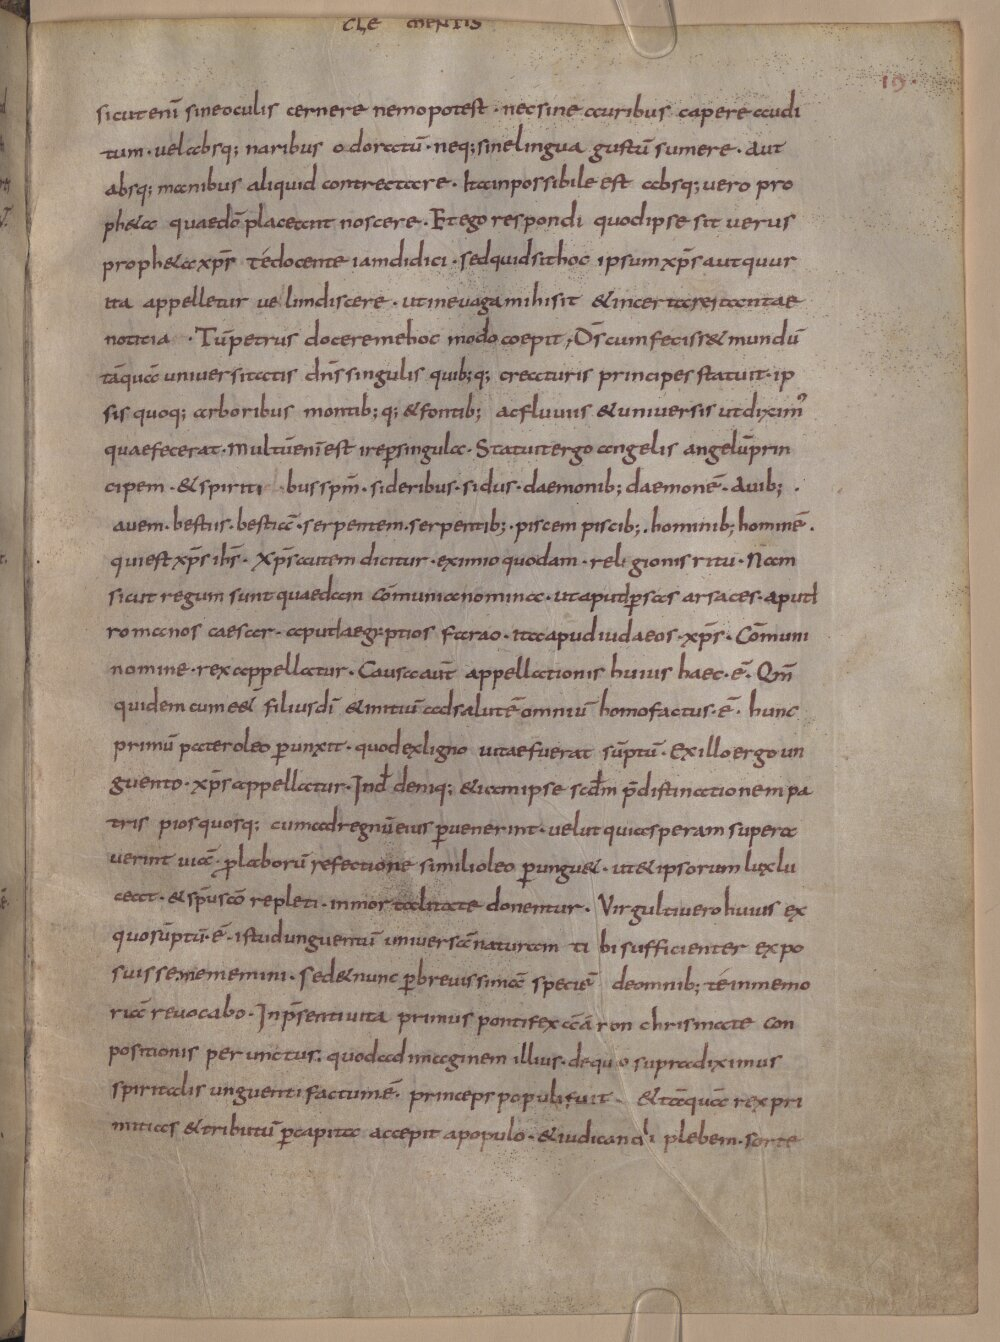 CLE MENTIS
19.
sicut enī sine oculis cernere nemo potest · nec sine auribus capere audi
tum · vel absq; naribus odoratū · neq; sine lingua gustū sumere · aut
absq; manibus aliquid contrectare · Ita inpossibile est absq; vero pro
pheta quae dō placeant noscere · Et ego respondi quod ipse sit verus
propheta xp̄s tē docente iam didici · sed quid sit hoc ipsum xp̄s aut quur
ita appelletur velim discere · ut ine vaga mihi sit & incerta rei tantae
noticia · Tū petrus docere me hoc modo coepit · D̄s cum fecisset mundū
tāquā universitatis dn̄s singulis quib;q; creaturis principes statuit · ip
sis quoq; arboribus montib;q; & fontib; ac fluviis & universis ut dixim᾽
quae fecerat · multū enī est ire per singula · Statuit ergo angelis angelū prin
cipem · & spiriti bus sp̄m · sideribus · sidus · daemonib; daemonē · avib; ·
avem · bestiis · bestiā · serpentem · serpentib; · piscem piscib; · hominib; hominē ·
qui est xp̄s ih̄s · Xp̄s autem dicitur · eximio quodam · religionis ritu · Nam
sicut regum sunt quaedam cōmunia nomina · ut aput p̱sas arsaces · aput
romanos caesar · aput aegyptios farao · ita apud iudaeos · xp̄s · Cōmuni
nomine · rex appellatur · Causa aut̄ appellationis huius haec · ē · Qm̄
quidem cum e&̄ filius dī & initiū ad salutē omniū homo factus · ē · hunc
primū pater oleo p̱unxit · quod ex ligno vitae fuerat sūptū · Ex illo ergo un
guento · xp̄s appellatur · Ind̄ deniq; & iam ipse scd̄m p̄distinationem pa
tris pios quosq; cum ad regnū eius p̱venerint · velut qui asperam supera
verint viā · p̱ laborū refectione simili oleo p̱ungu& · ut & ipsorum lux lu
ceat · & sp̄u scō repleti · inmortalitate donentur · Virgulti vero huius ex
quo sūptū · ē · istud unguentū universā naturam ti bi sufficienter expo
suisse me memini · sed & nunc p̱ brevissimā speciē de omnib; tē in memo
riā revocabo · In p̄senti vita primus pontifex āāron chrismate con
positionis perunctus · quod ad imaginem illius · de quo supra diximus
spiritalis unguenti factum ē · princeps populi fuit · & tāquā rex pri
mitias & tributū p̱ capita accepit a populo · & iudicandi plebem · sorte